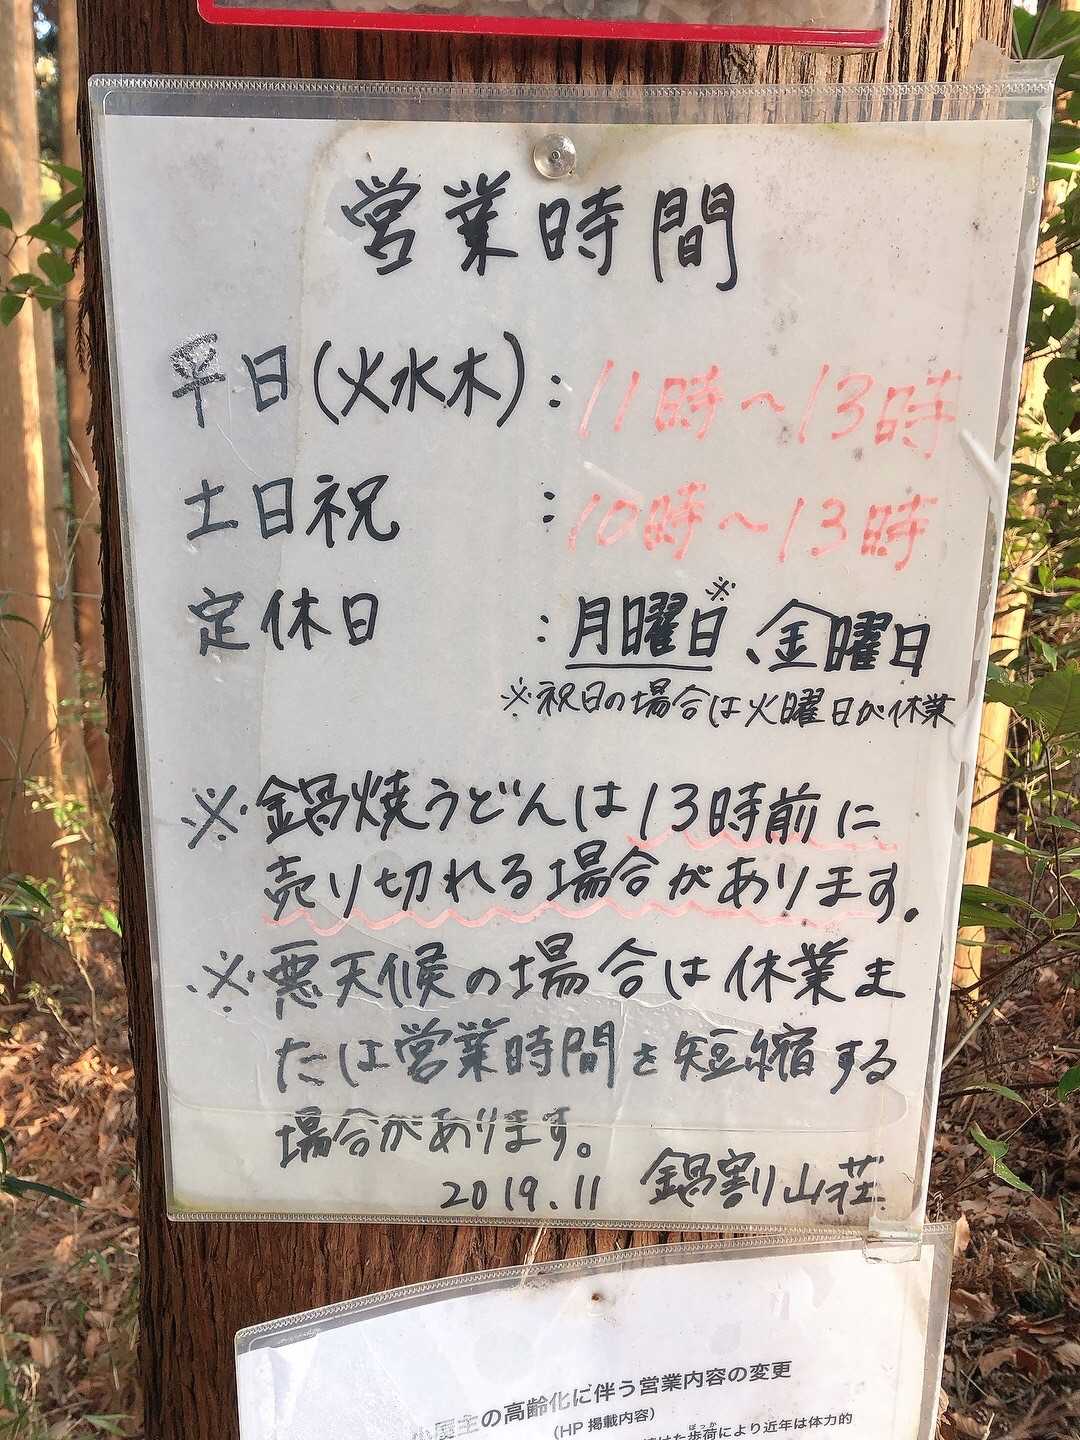 営業時間
平日(火水木):11時~13時
土日祝 :10時~13時
定休日 :月曜日※、金曜日
※祝日の場合は火曜日が休業
※鍋焼うどんは13時前に
売り切れる場合があります。
※悪天候の場合は休業ま
たは営業時間を短縮する
場合があります。
2019.11 鍋割山荘
小屋主の高齢化に伴う営業内容の変更
(HP 掲載内容)
ぼっか
けた歩荷により近年は体力的